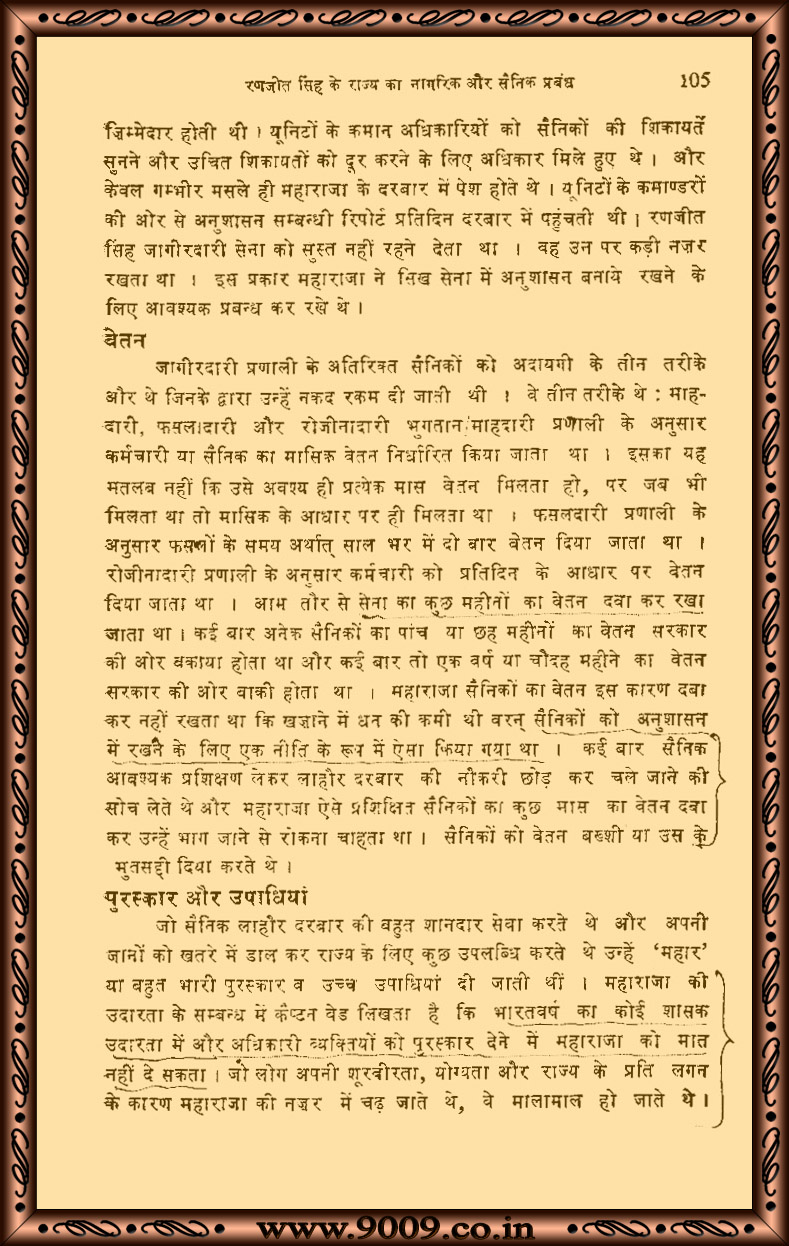 रणजीत सिंह के राज्य का नागरिक और सैनिक प्रबंध 105
ज़िम्मेदार होती थी । यूनिटों के कमान अधिकारियों को सैनिकों की शिकायतें
सुनने और उचित शिकायतों को दूर करने के लिए अधिकार मिले हुए थे । और
केवल गम्भीर मसले ही महाराजा के दरबार में पेश होते थे । यूनिटों के कमाण्डरों
की ओर से अनुशासन सम्बन्धी रिपोर्ट प्रतिदिन दरबार में पहुंचती थी । रणजीत
सिंह जागीरदारी सेना को सुस्त नहीं रहने देता था । वह उन पर कड़ी नज़र
रखता था । इस प्रकार महाराजा ने सिख सेना में अनुशासन बनाये रखने के
लिए आवश्यक प्रबन्ध कर रखे थे ।
वेतन
जागीरदारी प्रणाली के अतिरिक्त सैनिकों को अदायगी के तीन तरीके
और थे जिनके द्वारा उन्हें नकद रकम दी जाती थी । वे तीन तरीके थे : माह-
दारी, फसलादारी और रोजीनादारी भुगतान।माहदारी प्रणाली के अनुसार
कर्मचारी या सैनिक का मासिक वेतन निर्धारित किया जाता था । इसका यह
मतलब नहीं कि उसे अवश्य ही प्रत्येक मास वेतन मिलता हो, पर जब भी
मिलता था तो मासिक के आधार पर ही मिलता था । फसलदारी प्रणाली के
अनुसार फसलों के समय अर्थात् साल भर में दो बार वेतन दिया जाता था ।
रोजीनादारी प्रणाली के अनुसार कर्मचारी को प्रतिदिन के आधार पर वेतन
दिया जाता था । आम तौर से सेना का कुछ महीनों का वेतन दबा कर रखा
जाता था । कई बार अनेक सैनिकों का पांच या छह महीनों का वेतन सरकार
की ओर बकाया होता था और कई बार तो एक वर्ष या चौदह महीने का वेतन
सरकार की ओर बाकी होता था । महाराजा सैनिकों का वेतन इस कारण दबा
कर नहीं रखता था कि खज़ाने में धन की कमी थी वरन् सैनिकों को अनुशासन
में रखने के लिए एक नीति के रूप में ऐसा किया गया था । कई बार सैनिक
आवश्यक प्रशिक्षण लेकर लाहौर दरबार की नौकरी छोड़ कर चले जाने की
सोच लेते थे और महाराजा ऐसे प्रशिक्षित सैनिकों का कुछ मास का वेतन दबा
कर उन्हें भाग जाने से रोकना चाहता था । सैनिकों को वेतन बख्शी या उस के
मुतसद्दी दिया करते थे ।
पुरस्कार और उपाधियां
जो सैनिक लाहौर दरबार की बहुत शानदार सेवा करते थे और अपनी
जानों को खतरे में डाल कर राज्य के लिए कुछ उपलब्धि करते थे उन्हें ‘महार’
या बहुत भारी पुरस्कार व उच्च उपाधियां दी जाती थीं । महाराजा की
उदारता के सम्बन्ध में कैप्टन वेड लिखता है कि भारतवर्ष का कोई शासक
उदारता में और अधिकारी व्यक्तियों को पुरस्कार देने में महाराजा को मात
नहीं दे सकता । जो लोग अपनी शूरवीरता, योग्यता और राज्य के प्रति लगन
के कारण महाराजा की नज़र में चढ़ जाते थे, वे मालामाल हो जाते थे ।
www.9009.co.in